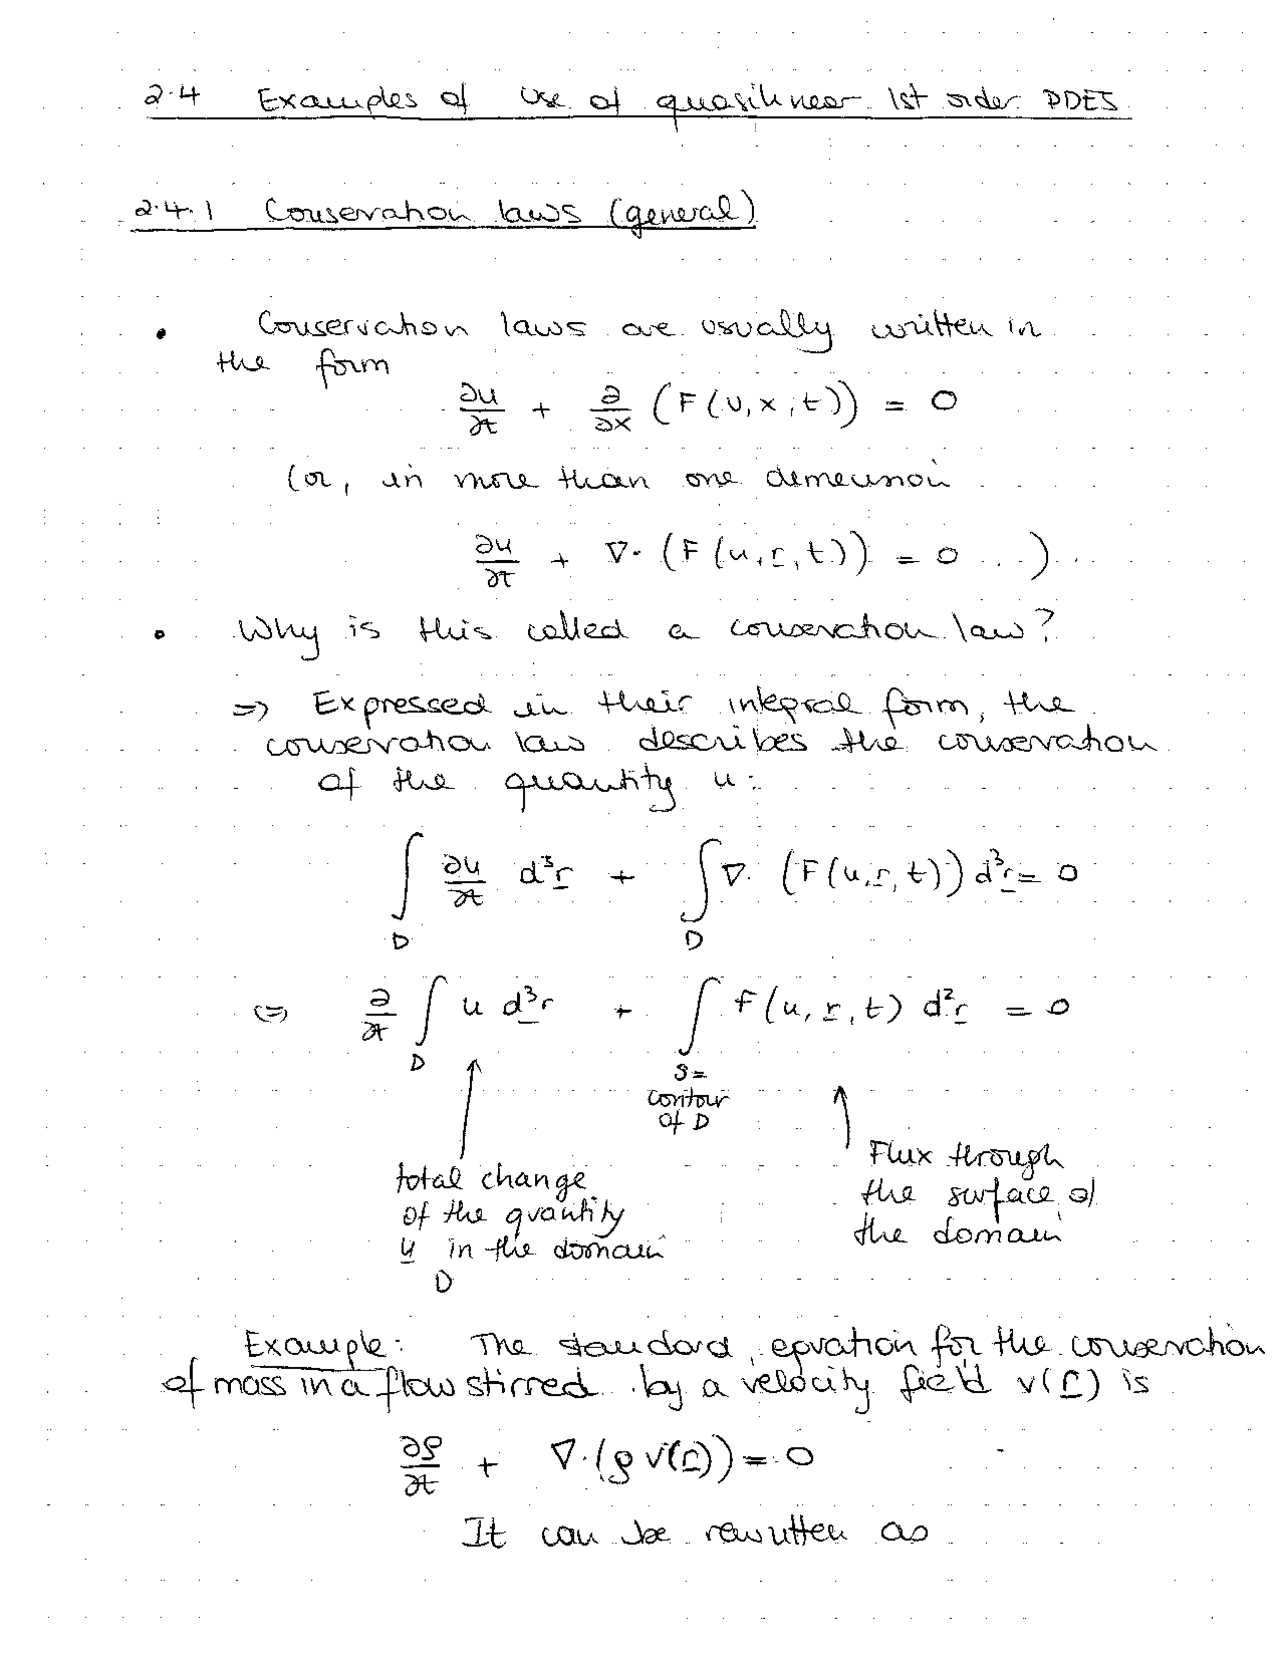 2.4 Examples of use of quasilinear 1st order PDES
2.4.1 Conservation laws (general)
• Conservation laws are usually written in
the form
∂u/∂t + ∂/∂x (F(u,x,t)) = 0
(or, in more than one demension
∂u/∂t + ∇·(F(u,r,t)) = 0 ...)
• Why is this called a conservation law?
⇒ Expressed in their integral form, the
conservation law describes the conservation
of the quantity u:
∫_D ∂u/∂t d³r + ∫_D ∇·(F(u,r,t)) d³r = 0
(=) ∂/∂t ∫_D u d³r + ∫_{S = contour of D} F(u,r,t) d²r = 0
total change
of the quantity
u in the domain
D
Flux through
the surface of
the domain
Example: The standard equation for the conservation
of mass in a flow stirred by a velocity field v(r) is
∂ρ/∂t + ∇·(ρ v(r)) = 0
It can be rewritten as